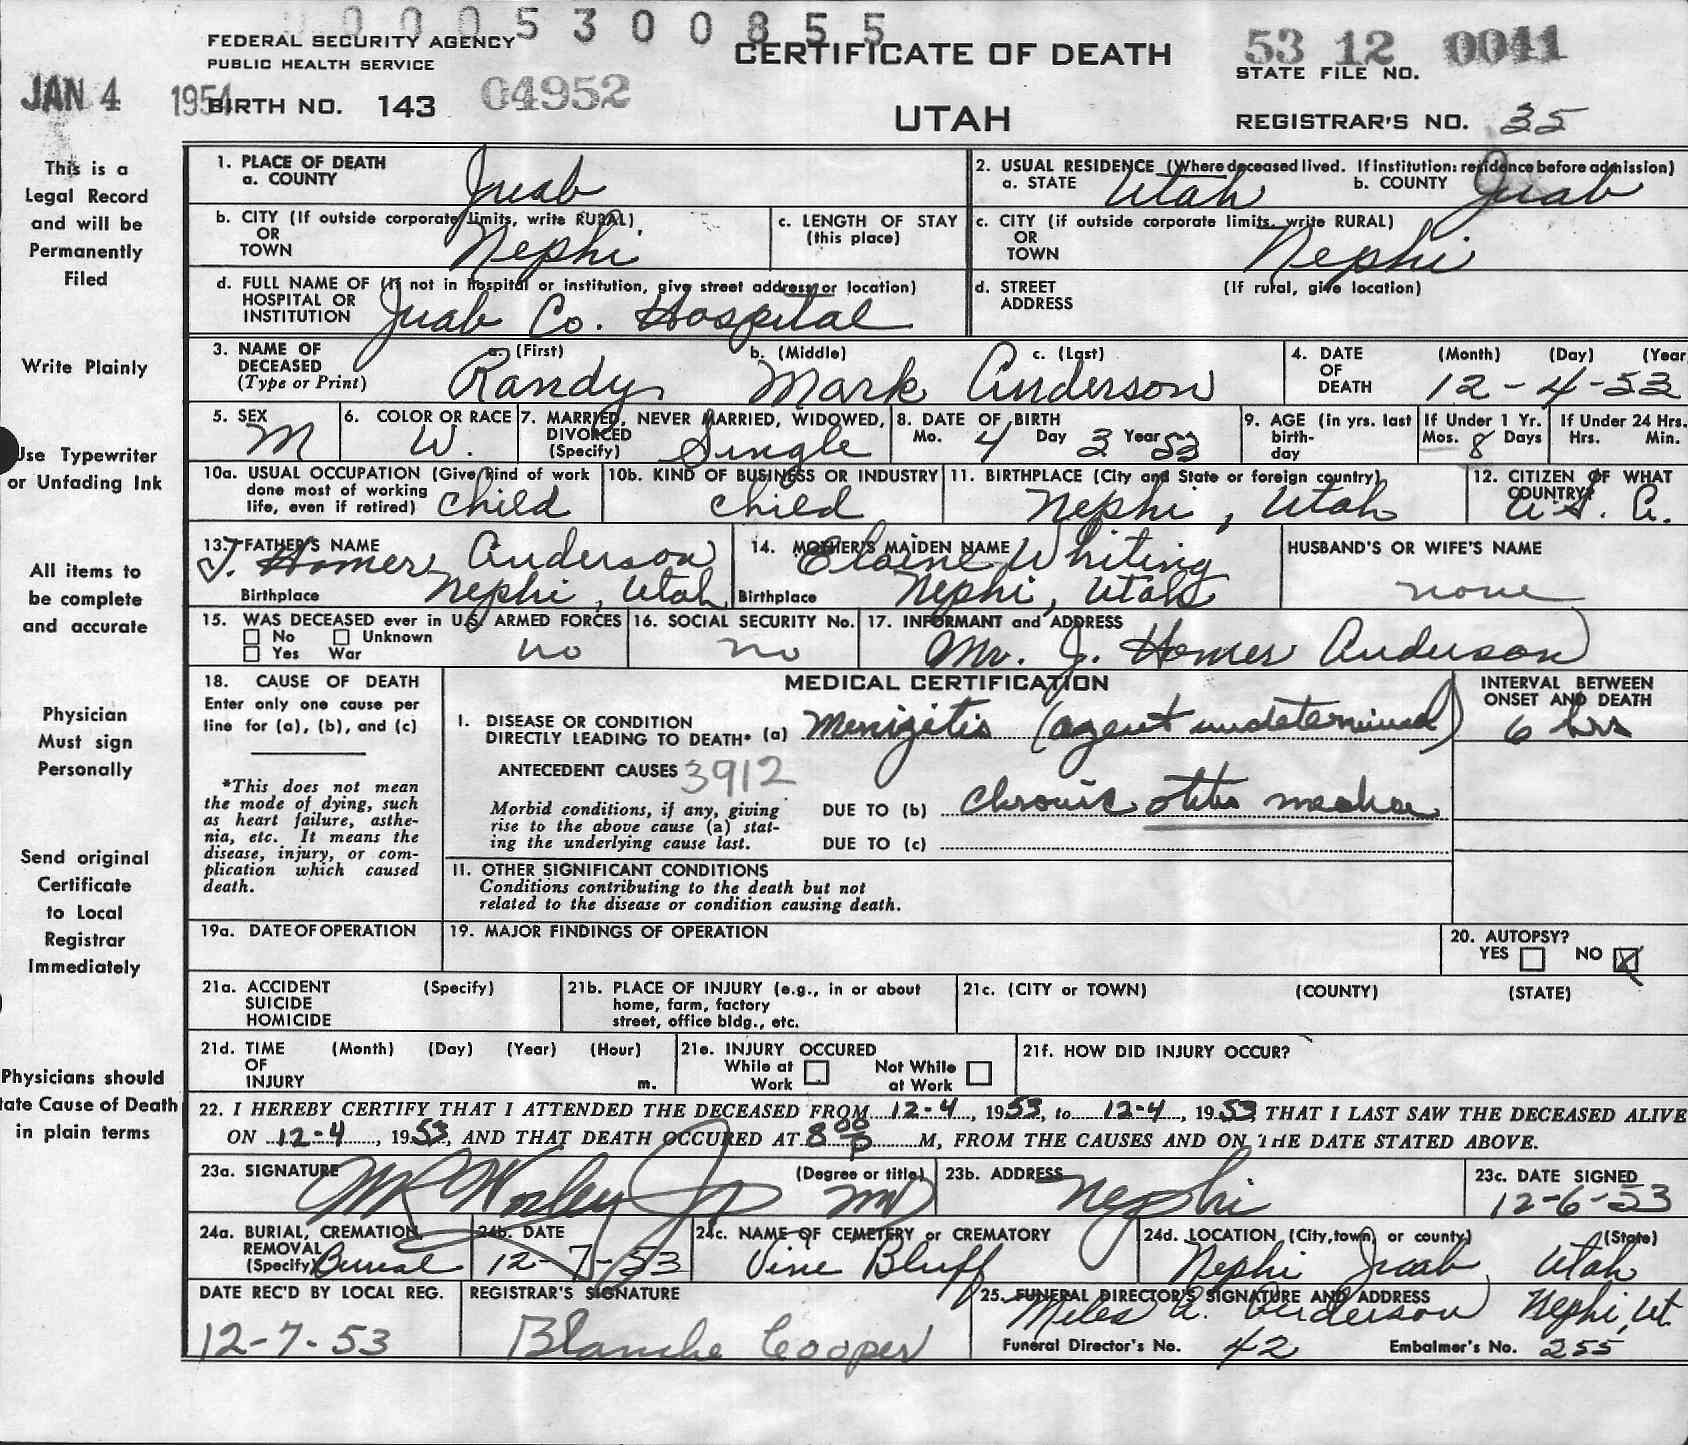 0 0 0 5 3 0 0 8 5 5
FEDERAL SECURITY AGENCY
PUBLIC HEALTH SERVICE
CERTIFICATE OF DEATH
53 12 0041
STATE FILE NO.
JAN 4 1954
BIRTH NO. 143 04952
UTAH
REGISTRAR'S NO. 35
This is a
Legal Record
and will be
Permanently
Filed
Write Plainly
Use Typewriter
or Unfading Ink
All items to
be complete
and accurate
Physician
Must sign
Personally
Send original
Certificate
to Local
Registrar
Immediately
Physicians should
tate Cause of Death
in plain terms
1. PLACE OF DEATH
a. COUNTY Juab
2. USUAL RESIDENCE (Where deceased lived. If institution: residence before admission)
a. STATE Utah b. COUNTY Juab
b. CITY (If outside corporate limits, write RURAL)
OR
TOWN Nephi
c. LENGTH OF STAY
(this place)
c. CITY (if outside corporate limits, write RURAL)
OR
TOWN Nephi
d. FULL NAME OF (If not in Hospital or institution, give street address or location)
HOSPITAL OR
INSTITUTION Juab Co. Hospital
d. STREET (If rural, give location)
ADDRESS
3. NAME OF DECEASED (Type or Print)
a. (First) b. (Middle) c. (Last)
Randy Mark Anderson
4. DATE OF DEATH (Month) (Day) (Year
12-4-53
5. SEX M
6. COLOR OR RACE W.
7. MARRIED, NEVER MARRIED, WIDOWED,
DIVORCED
(Specify) Single
8. DATE OF BIRTH
Mo. 4 Day 3 Year 53
9. AGE (in yrs. last
birth-
day
If Under 1 Yr.
Mos. 8 Days
If Under 24 Hrs.
Hrs. Min.
10a. USUAL OCCUPATION (Give kind of work
done most of working
life, even if retired) child
10b. KIND OF BUSINESS OR INDUSTRY
child
11. BIRTHPLACE (City and State or foreign country)
Nephi, Utah
12. CITIZEN OF WHAT
COUNTRY?
U.S. A.
13. FATHER'S NAME
J. Homer Anderson
Birthplace Nephi, Utah
14. MOTHER'S MAIDEN NAME
Elaine Whiting
Birthplace Nephi, Utah
HUSBAND'S OR WIFE'S NAME
none
15. WAS DECEASED ever in U.S. ARMED FORCES
No Unknown
Yes War no
16. SOCIAL SECURITY No.
no
17. INFORMANT and ADDRESS
Mr. J. Homer Anderson
18. CAUSE OF DEATH
Enter only one cause per
line for (a), (b), and (c)
*This does not mean
the mode of dying, such
as heart failure, asthe-
nia, etc. It means the
disease, injury, or com-
plication which caused
death.
MEDICAL CERTIFICATION
INTERVAL BETWEEN
ONSET AND DEATH
I. DISEASE OR CONDITION
DIRECTLY LEADING TO DEATH* (a) Menigitis (agent undetermined) 6 hrs
ANTECEDENT CAUSES 3912
Morbid conditions, if any, giving
rise to the above cause (a) stat-
ing the underlying cause last.
DUE TO (b) chronic otitis media
DUE TO (c)
II. OTHER SIGNIFICANT CONDITIONS
Conditions contributing to the death but not
related to the disease or condition causing death.
19a. DATE OF OPERATION
19. MAJOR FINDINGS OF OPERATION
20. AUTOPSY?
YES NO X
21a. ACCIDENT (Specify)
SUICIDE
HOMICIDE
21b. PLACE OF INJURY (e.g., in or about
home, farm, factory
street, office bldg., etc.
21c. (CITY or TOWN) (COUNTY) (STATE)
21d. TIME (Month) (Day) (Year) (Hour)
OF
INJURY m.
21e. INJURY OCCURED
While at Work Not While at Work
21f. HOW DID INJURY OCCUR?
22. I HEREBY CERTIFY THAT I ATTENDED THE DECEASED FROM 12-4, 1953, to 12-4, 1953, THAT I LAST SAW THE DECEASED ALIVE
ON 12-4, 1953, AND THAT DEATH OCCURED AT 8 00 P M, FROM THE CAUSES AND ON THE DATE STATED ABOVE.
23a. SIGNATURE (Degree or title)
Worley Jr MD
23b. ADDRESS Nephi
23c. DATE SIGNED
12-6-53
24a. BURIAL, CREMATION,
REMOVAL
(Specify) Burial
24b. DATE
12-7-53
24c. NAME OF CEMETERY or CREMATORY
Vine Bluff
24d. LOCATION (City, town, or county) (State)
Nephi Juab Utah
DATE REC'D BY LOCAL REG.
12-7-53
REGISTRAR'S SIGNATURE
Blanche Cooper
25. FUNERAL DIRECTOR'S SIGNATURE AND ADDRESS
Miles A. Anderson Nephi, Ut.
Funeral Director's No. 42 Embalmer's No. 255